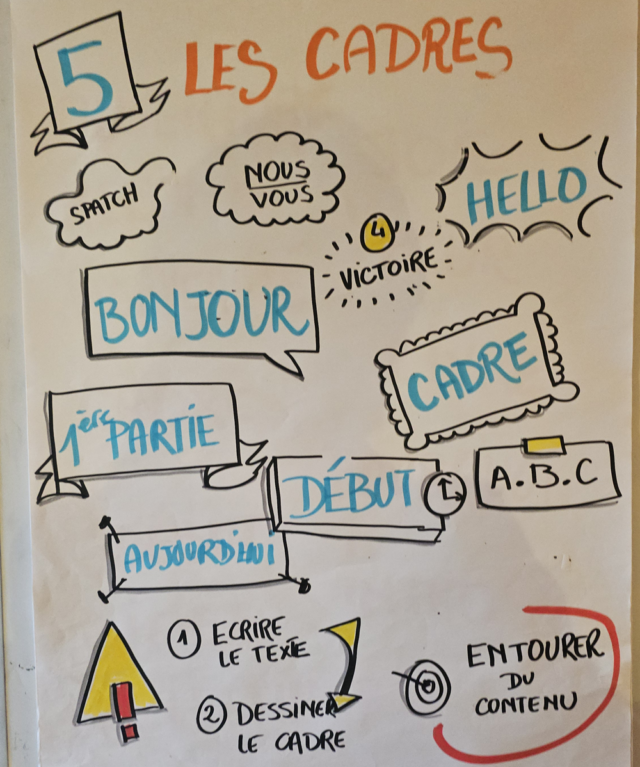 5 LES CADRES
SPATCH
NOUS
VOUS
HELLO
4
VICTOIRE
BONJOUR
CADRE
1ère PARTIE
DÉBUT
A.B.C
AUJOURD'HUI
1 ECRIRE
LE TEXTE
2 DESSINER
LE CADRE
ENTOURER
DU
CONTENU